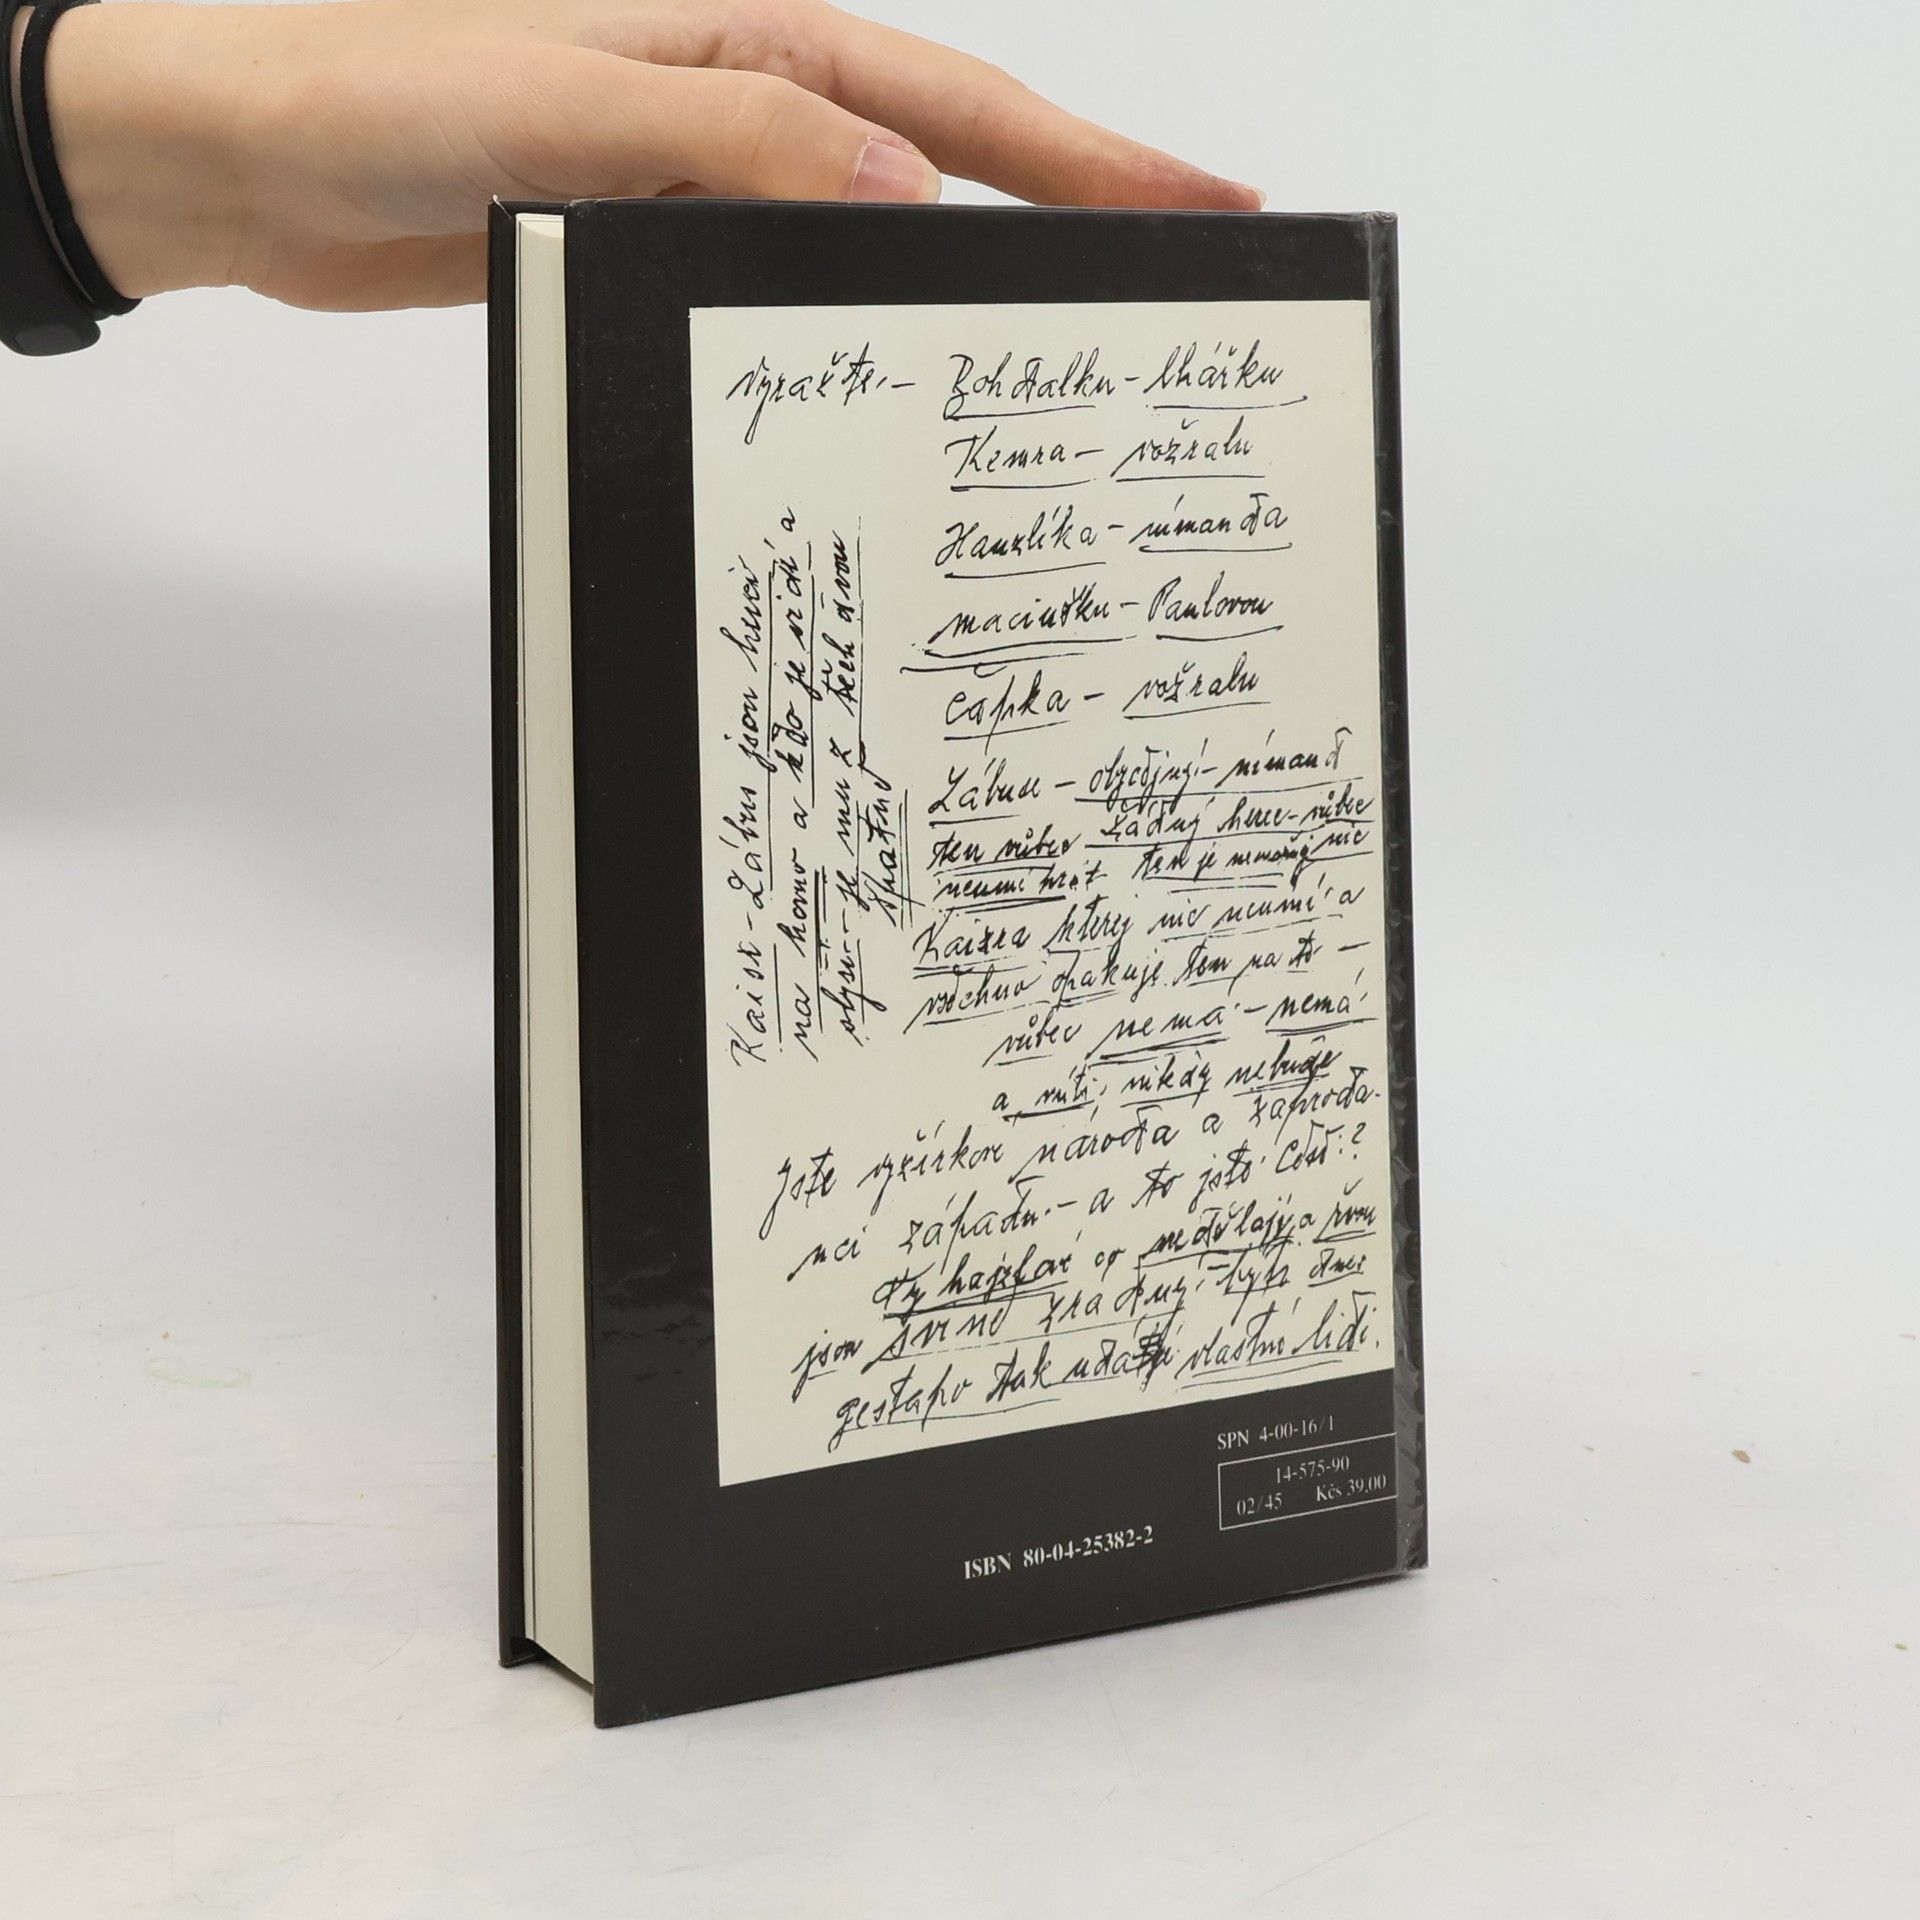 vyražte:– Bohdalku – lhářku
Kemra – vožralu
Hanzlíka – nímanda
maciušku – Paulovou
Čápka – vožralu
Zábuse – obyčejný – nímand
ten vůbec žádný herec – vůbec
neumí hrát ten je nemožný nic
Kaizra kterej nic neumí a
všechno opakuje ten na to –
vůbec nemá – nemá
a nikdy nebude
Jste vyžírkové národa a zaproda-
nci západu. – a to jste
ty hajzlové co nedělají a řvou
jsou svině zrádný – dnes
gestapo tak vlastní lidi.
Kaisr – Zábus jsou herci
na hovno a kdo je vidí a
slyší – je mu z těch dvou
špatně
SPN 4-00-16/1
14-575-90
02/45 Kčs 39,00
ISBN 80-04-25382-2